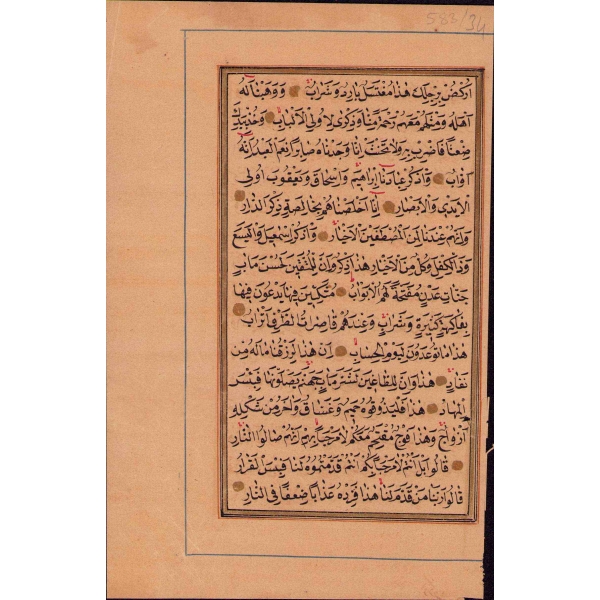 583/34
اُرْكُضْ بِرِجْلِكَ هٰذَا مُغْتَسَلٌ بَارِدٌ وَشَرَابٌ وَوَهَبْنَا لَهُ
اَهْلَهُ وَمِثْلَهُمْ مَعَهُمْ رَحْمَةً مِنَّا وَذِكْرٰى لِاُولِى الْاَلْبَابِ وَخُذْ بِيَدِكَ
ضِغْثًا فَاضْرِبْ بِهِ وَلَا تَحْنَثْ اِنَّا وَجَدْنَاهُ صَابِرًا نِعْمَ الْعَبْدُ اِنَّهُ
اَوَّابٌ وَاذْكُرْ عِبَادَنَا اِبْرٰهِيمَ وَاِسْحَاقَ وَيَعْقُوبَ اُولِى
الْاَيْدِى وَالْاَبْصَارِ اِنَّا اَخْلَصْنَاهُمْ بِخَالِصَةٍ ذِكْرَى الدَّارِ
وَاِنَّهُمْ عِنْدَنَا لَمِنَ الْمُصْطَفَيْنَ الْاَخْيَارِ وَاذْكُرْ اِسْمٰعِيلَ وَالْيَسَعَ
وَذَا الْكِفْلِ وَكُلٌّ مِنَ الْاَخْيَارِ هٰذَا ذِكْرٌ وَاِنَّ لِلْمُتَّقِينَ لَحُسْنَ مَاٰبٍ
جَنَّاتِ عَدْنٍ مُفَتَّحَةً لَهُمُ الْاَبْوَابُ مُتَّكِئِينَ فِيهَا يَدْعُونَ فِيهَا
بِفَاكِهَةٍ كَثِيرَةٍ وَشَرَابٍ وَعِنْدَهُمْ قَاصِرَاتُ الطَّرْفِ اَتْرَابٌ
هٰذَا مَا تُوعَدُونَ لِيَوْمِ الْحِسَابِ اِنَّ هٰذَا لَرِزْقُنَا مَا لَهُ مِنْ
نَفَادٍ هٰذَا وَاِنَّ لِلطَّاغِينَ لَشَرَّ مَاٰبٍ جَهَنَّمَ يَصْلَوْنَهَا فَبِئْسَ
الْمِهَادُ هٰذَا فَلْيَذُوقُوهُ حَمِيمٌ وَغَسَّاقٌ وَاٰخَرُ مِنْ شَكْلِهِ
اَزْوَاجٌ هٰذَا فَوْجٌ مُقْتَحِمٌ مَعَكُمْ لَا مَرْحَبًا بِهِمْ اِنَّهُمْ صَالُوا النَّارِ
قَالُوا بَلْ اَنْتُمْ لَا مَرْحَبًا بِكُمْ اَنْتُمْ قَدَّمْتُمُوهُ لَنَا فَبِئْسَ الْقَرَارُ
قَالُوا رَبَّنَا مَنْ قَدَّمَ لَنَا هٰذَا فَزِدْهُ عَذَابًا ضِعْفًا فِى النَّارِ